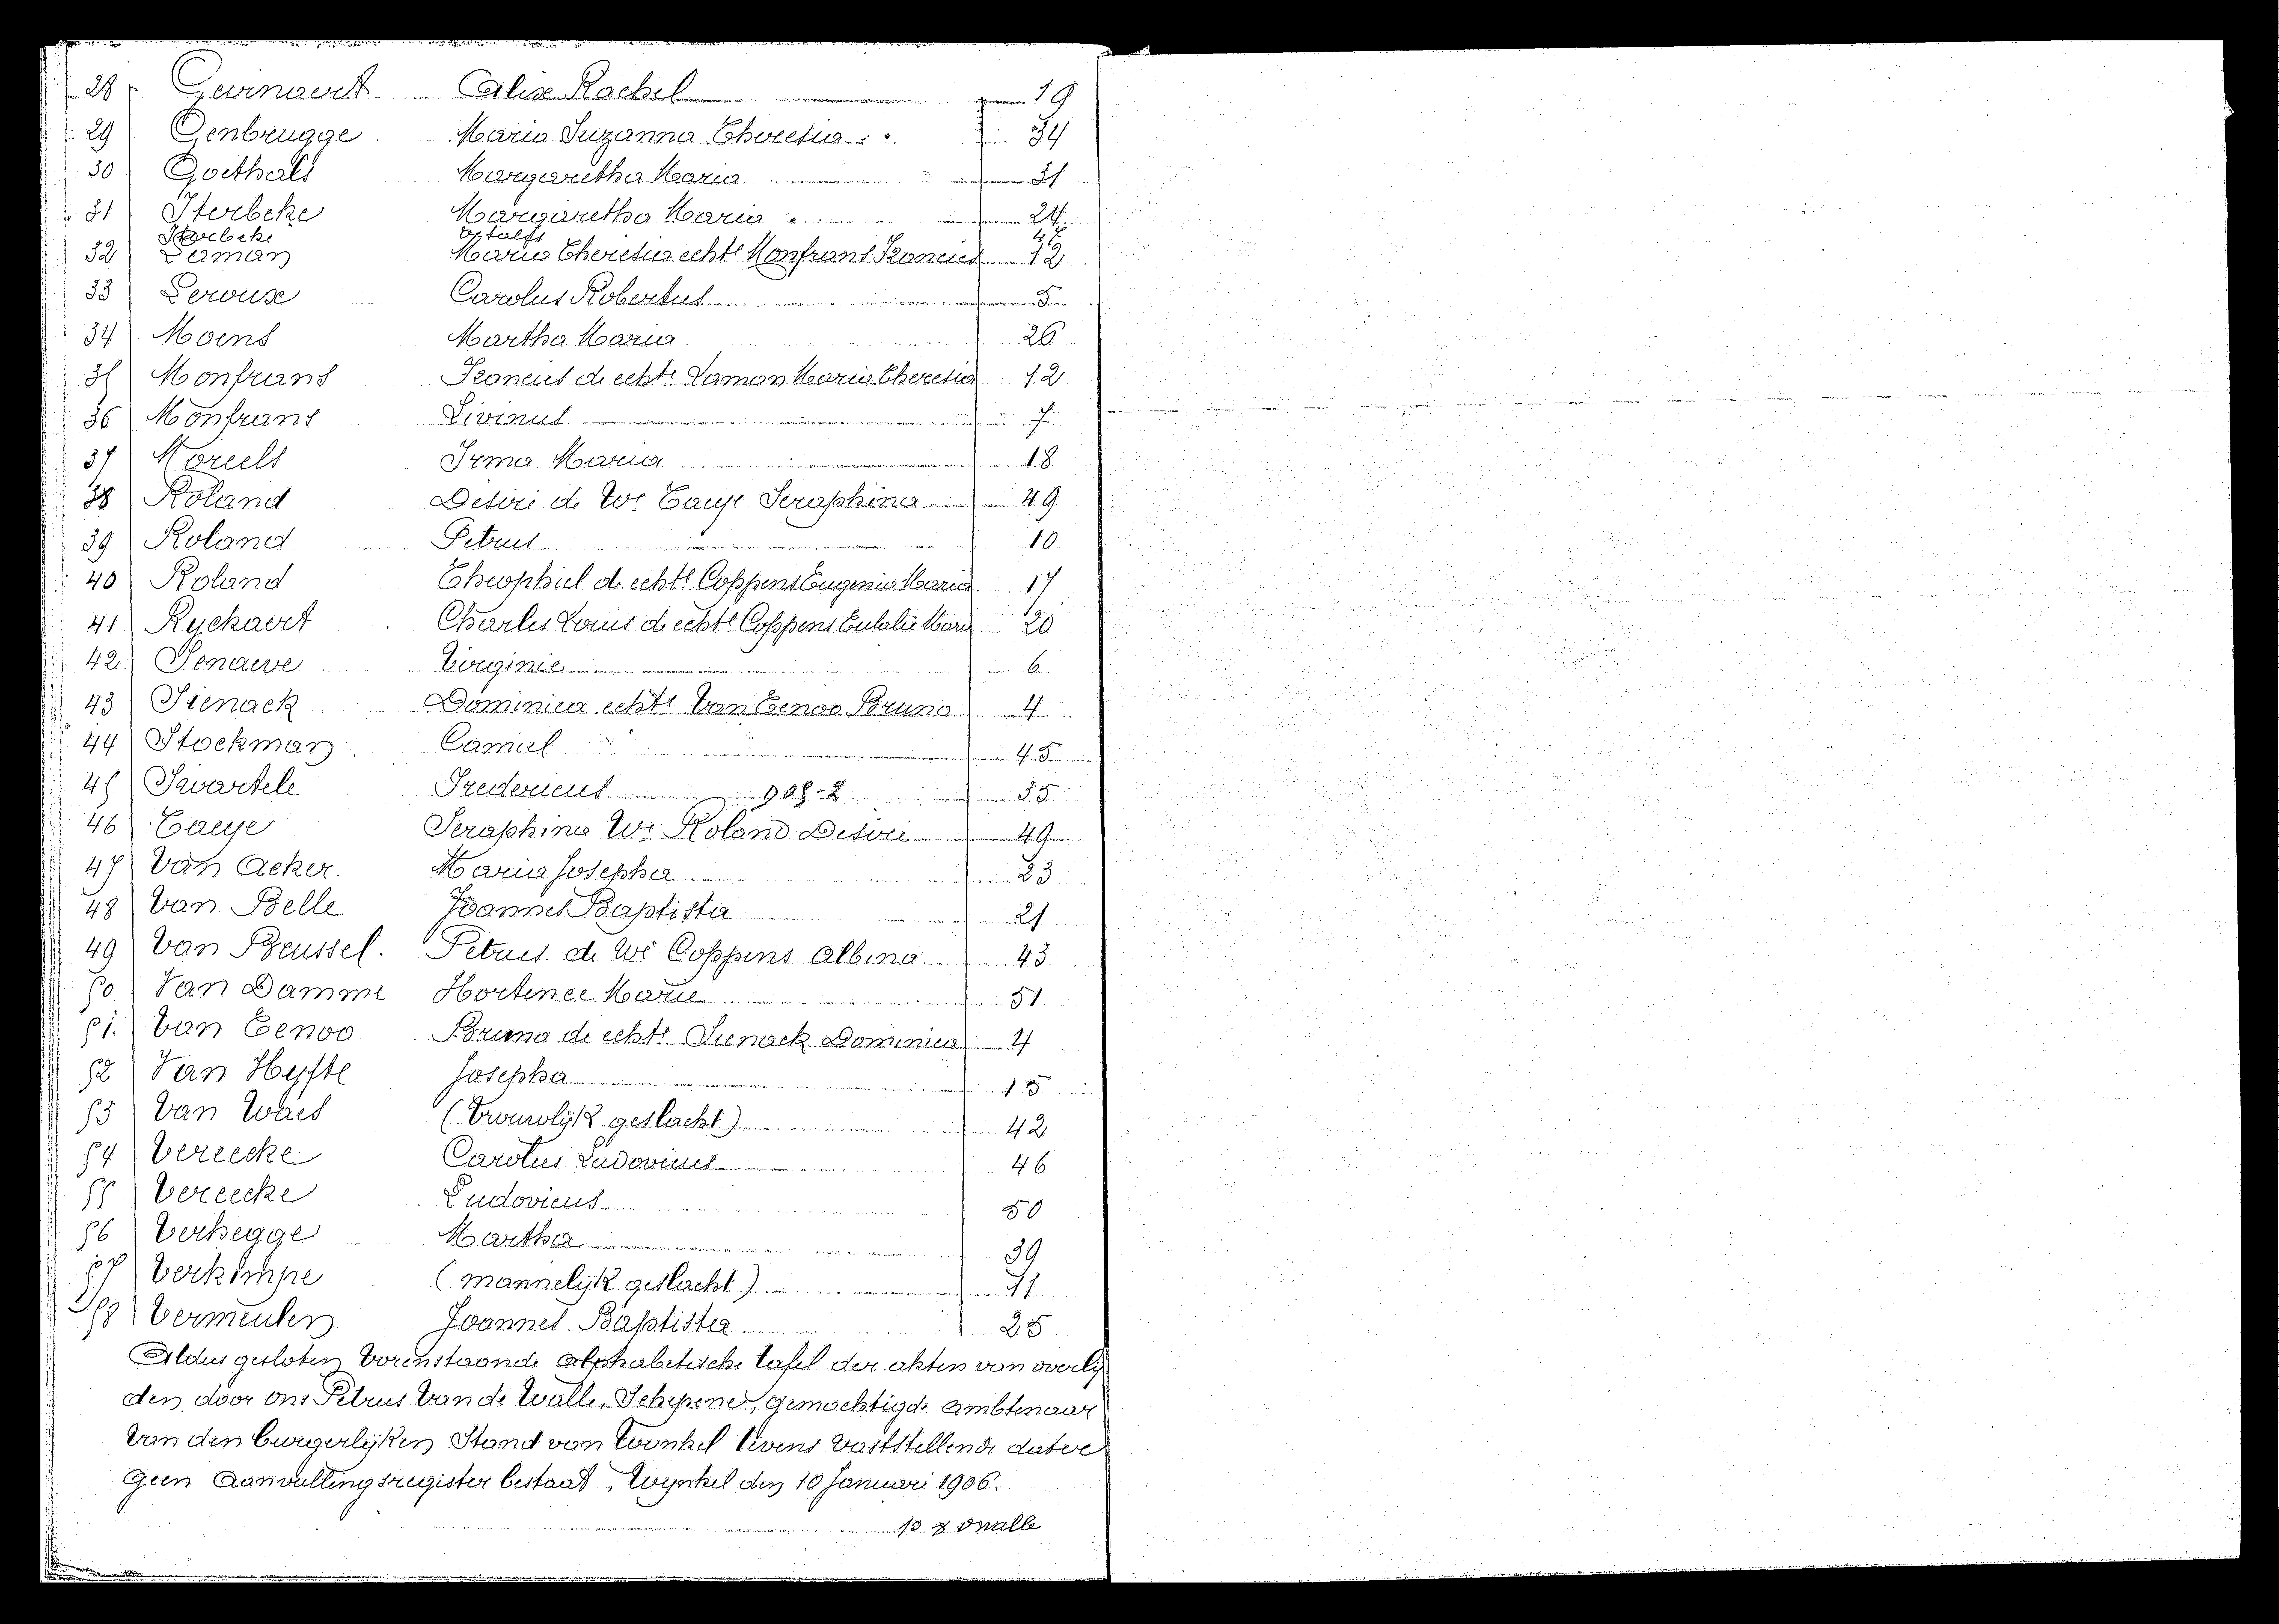 28 Geirnaert Alice Rachel 19
29 Genbrugge Maria Suzanna Theresia 34
30 Goethals Margaretha Maria 31
31 Sterbeke Margaretha Maria 24
Sterbeke Vitalis 47
32 Laman Maria Theresia echte Monfrans Francies 12
33 Lerouse Carolus Robertus 5
34 Moens Martha Maria 26
35 Monfrans Francies de echte Laman Maria Theresia 12
36 Monfrans Livinus 7
37 Moreels Irma Maria 18
38 Roland Desiré de We Taeye Seraphina 49
39 Roland Petrus 10
40 Roland Theophiel de echte Coppens Eugenia Maria 17
41 Ryckaert Charles Louis de echte Coppens Eulalie Marie 20
42 Senawe Virginie 6
43 Sienack Dominica echte Van Eenoo Bruno 4
44 Stockman Camiel 45
45 Swartele Fredericus 908-2 35
46 Taeye Seraphina We Roland Desiré 49
47 Van Acker Maria Josepha 23
48 Van Belle Joannes Baptista 21
49 Van Beussel Petrus de We Coppens Albina 43
50 Van Damme Hortence Marie 51
51 Van Eenoo Bruno de echte Sienack Dominica 4
52 Van Hyfte Josepha 15
53 Van Waes (Vrouwlijk geslacht) 42
54 Vereecke Carolus Ludovicus 46
55 Vereecke Ludovicus 50
56 Verhegge Martha 39
57 Verkimpe (mannelijk geslacht) 11
58 Vermeulen Joannes Baptista 25
Aldus gesloten Vorenstaande alphabetische tafel der akten van overly
den door ons Petrus Van de Walle, Schepene, gemachtigde ambtenaar
Van den burgerlijken Stand van Winkel tevens vaststellende dat er
geen aanvullingsregister bestaat, Wynkel den 10 Januari 1906.